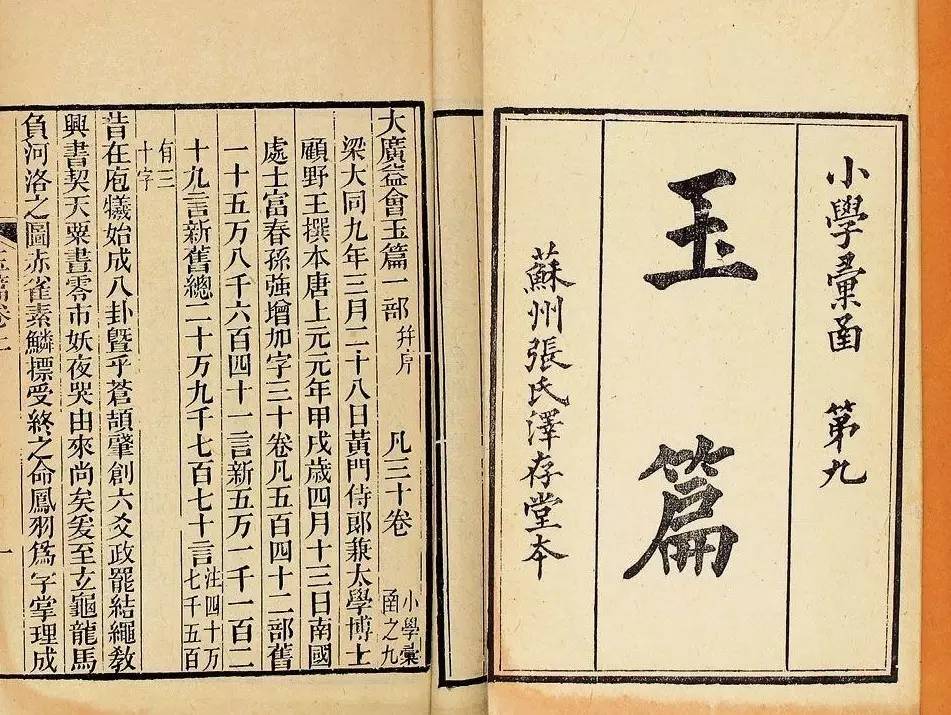 小學彙函 第九
玉篇
蘇州張氏澤存堂本
大廣益會玉篇一部 并序 凡三十卷 小學彙函之九
梁大同九年三月二十八日黃門侍郎兼太學博士
顧野王撰本唐上元元年甲戌歲四月十三日南國
處士富春孫強增加字三十卷凡五百四十二部舊
一十五万八千六百四十一言新五万一千一百二
十九言新舊總二十万九千七百七十言 注四十万七千五百
有三十字
昔在庖犧始成八卦暨乎蒼頡肇創六爻政罷結繩教
興書契天粟晝零市妖夜哭由來尚矣爰至玄龜龍馬
負河洛之圖赤雀素鱗標受終之命鳳羽爲字掌理成
一